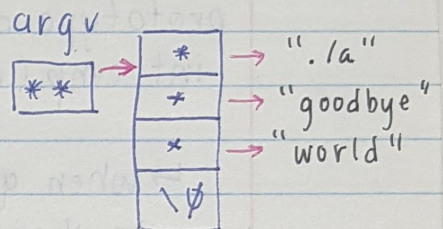 argv
**
* → "./a"
* → "goodbye"
* → "world"
\0